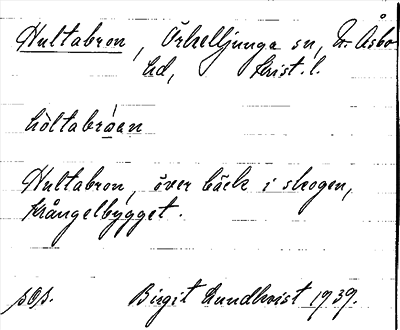 Hultabron, Örkelljunga sn, N. Åsbo
hd, Krist. l.
hòltabráan
Hultabron, över bäck i skogen,
Krångelbygget.
sös. Birgit Lundkvist 1939.